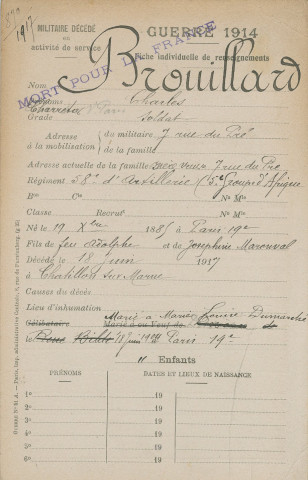 1917
MILITAIRE DÉCÉDÉ
en
activité de service
GUERRE 1914
Fiche individuelle de renseignements
MORT POUR LA FRANCE
Nom Brouillard
Prénoms Charles
Grade Soldat
Adresse à la mobilisation du militaire 7 rue du Pré
de la famille
Adresse actuelle de la famille 7 rue du Pré
Régiment 58e d'Artillerie (5e Groupe d'Afrique
Bon Cie N° Mle
Classe Recrut N° Mle
Né le 19 Xbre 1885 à Paris 19e
Fils de feu Adolphe et de Josephine
Décédé le 18 juin 1917
à Chatillon sur Marne
Causes du décès
Lieu d'inhumation
Marié à Marie Louise
Célibataire Marié à ou Veuf de
le juin Paris 19e
" Enfants
PRÉNOMS DATES ET LIEUX DE NAISSANCE
1° 19
2° 19
3° 19
4° 19
5° 19
6° 19